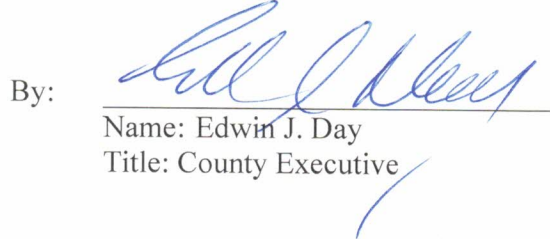 By:
Name: Edwin J. Day
Title: County Executive